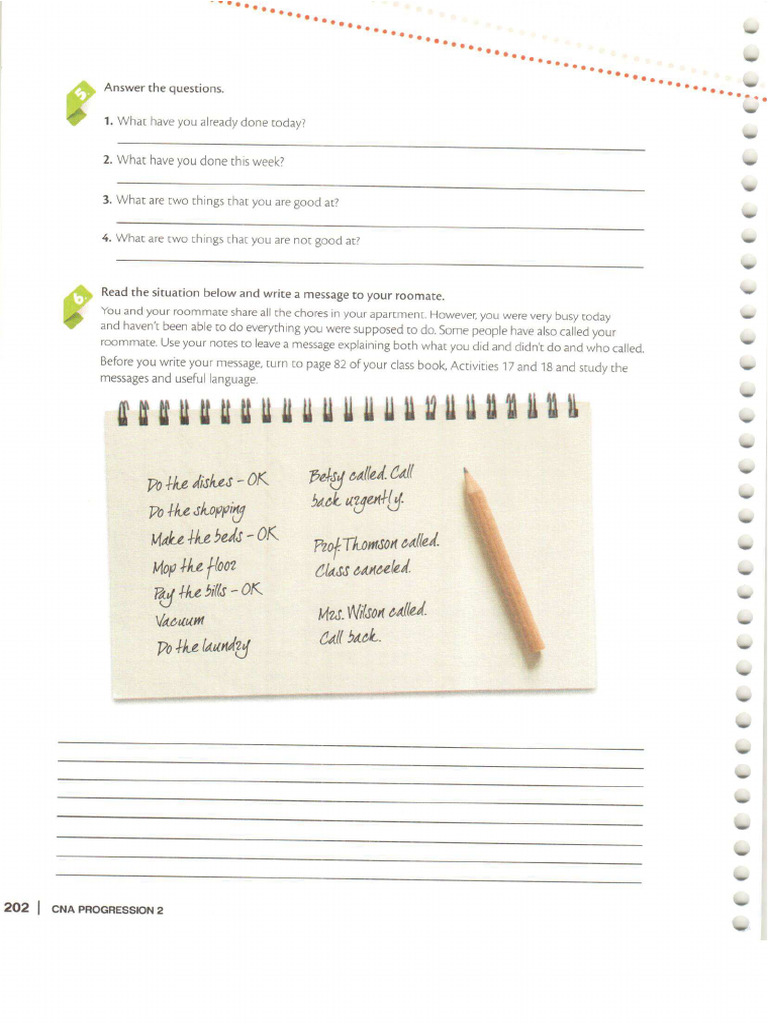 5.
Answer the questions.
1. What have you already done today?
2. What have you done this week?
3. What are two things that you are good at?
4. What are two things that you are not good at?
6.
Read the situation below and write a message to your roomate.
You and your roommate share all the chores in your apartment. However, you were very busy today
and haven't been able to do everything you were supposed to do. Some people have also called your
roommate. Use your notes to leave a message explaining both what you did and didn't do and who called.
Before you write your message, turn to page 82 of your class book, Activities 17 and 18 and study the
messages and useful language.
Do the dishes - OK
Do the shopping
Make the beds - OK
Mop the floor
Pay the bills - OK
Vacuum
Do the laundry
Betsy called. Call
back urgently.
Prof. Thomson called.
Class canceled.
Mrs. Wilson called.
Call back.
202 | CNA PROGRESSION 2